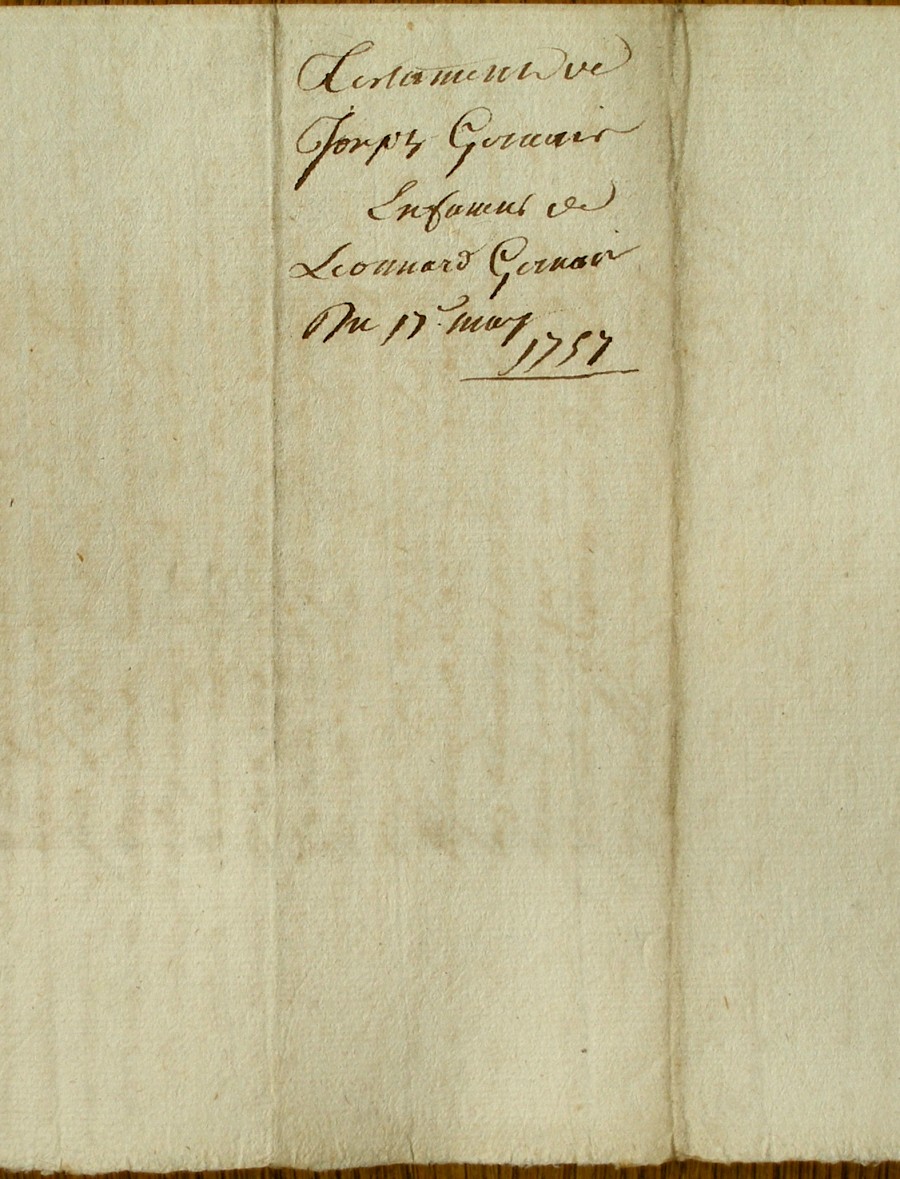 Testament de
Joseph Germain
En faveur de
Leonnard Germain
Du 17e may
1757